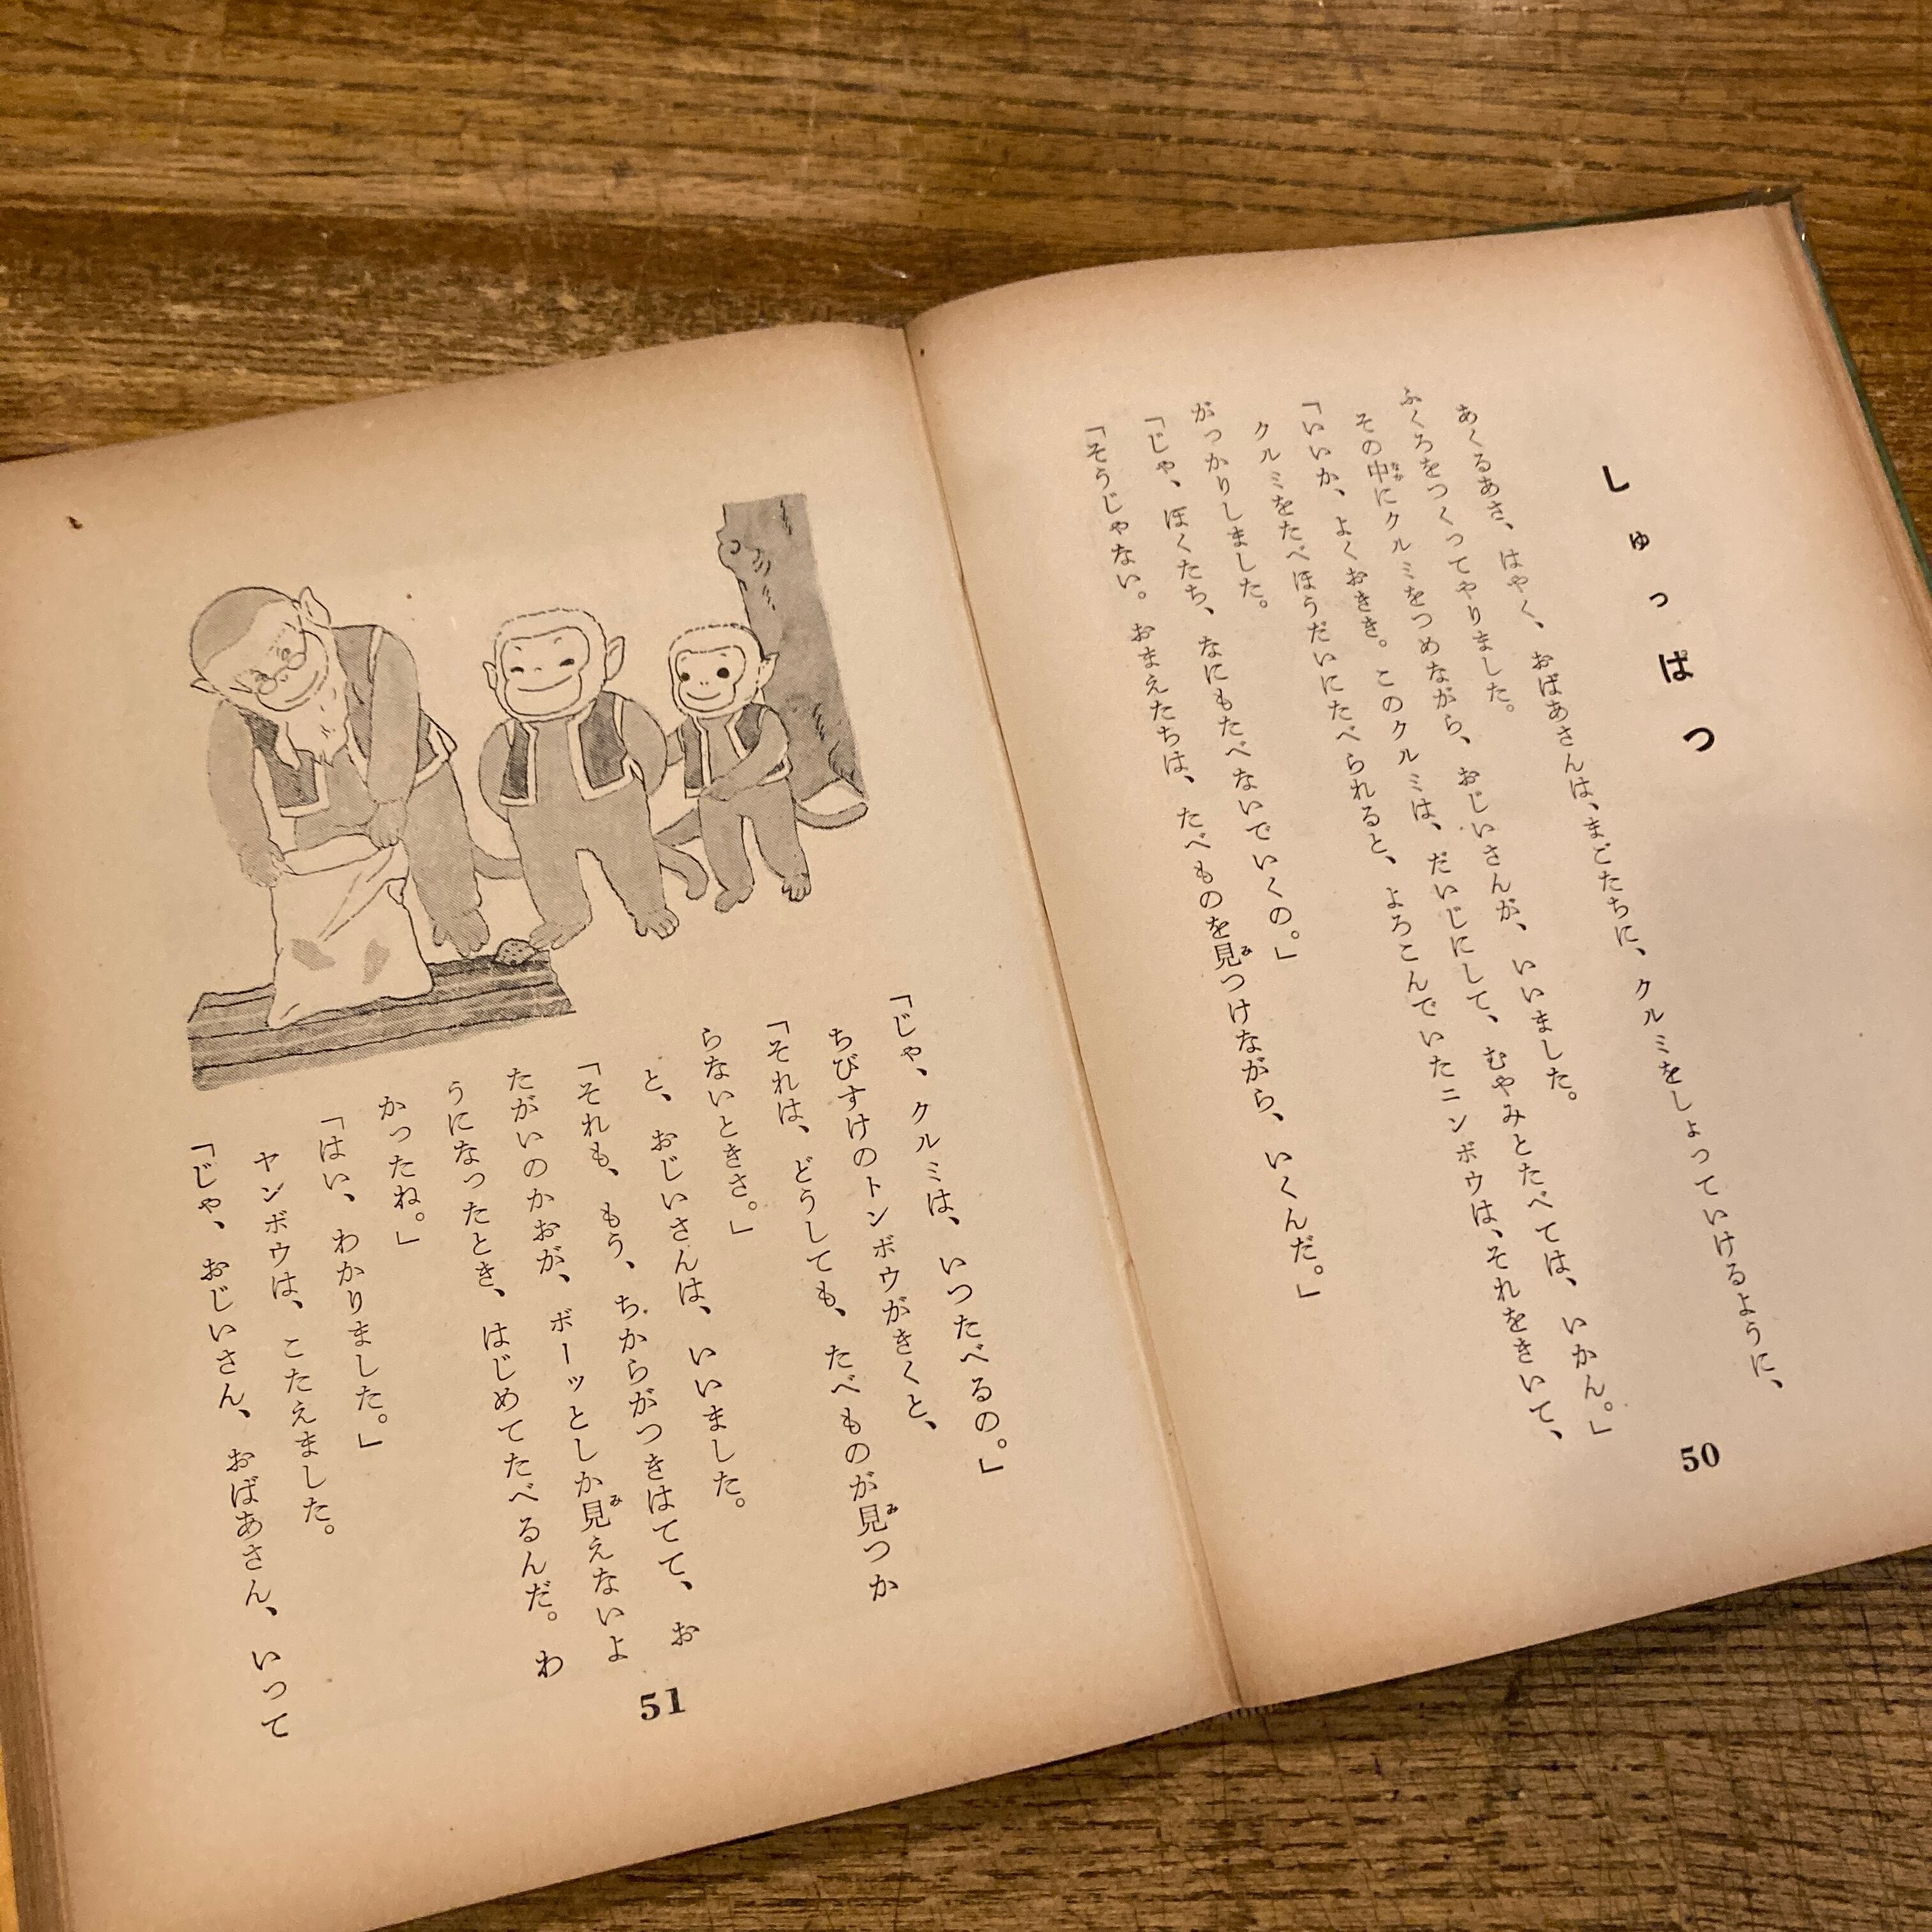 しゅっぱつ
あくるあさ、はやく、おばあさんは、まごたちに、クルミをしょっていけるように、
ふくろをつくってやりました。
その中にクルミをつめながら、おじいさんが、いいました。
「いいか、よくおきき。このクルミは、だいじにして、むやみとたべては、いかん。」
クルミをたべほうだいにたべられると、よろこんでいたニンボウは、それをきいて、
がっかりしました。
「じゃ、ぼくたち、なにもたべないでいくの。」
「そうじゃない。おまえたちは、たべものを見つけながら、いくんだ。」
50
「じゃ、クルミは、いつたべるの。」
ちびすけのトンボウがきくと、
「それは、どうしても、たべものが見つか
らないときさ。」
と、おじいさんは、いいました。
「それも、もう、ちからがつきはてて、お
たがいのかおが、ボーッとしか見えないよ
うになったとき、はじめてたべるんだ。わ
かったね。」
「はい、わかりました。」
ヤンボウは、こたえました。
「じゃ、おじいさん、おばあさん、いって
51